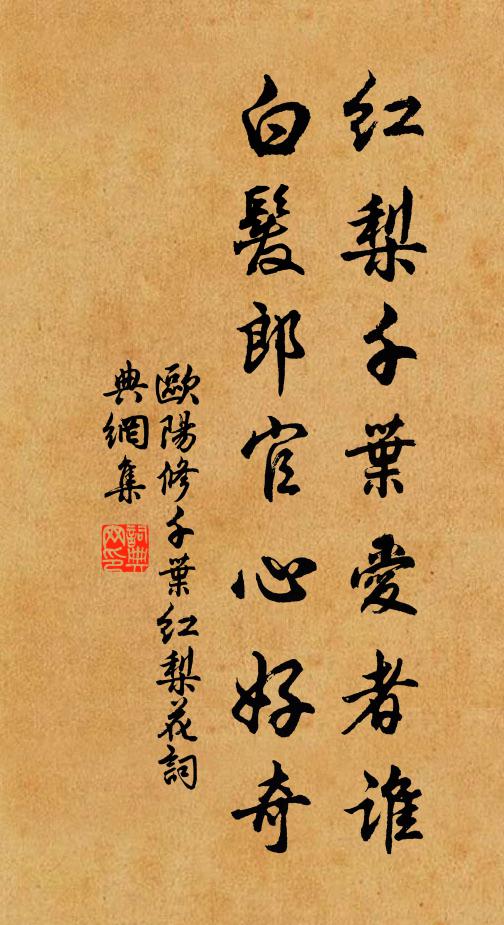 紅梨千葉愛者誰
白髮郎官心好奇
歐陽修千葉紅梨花詞
典網集
詞典网印